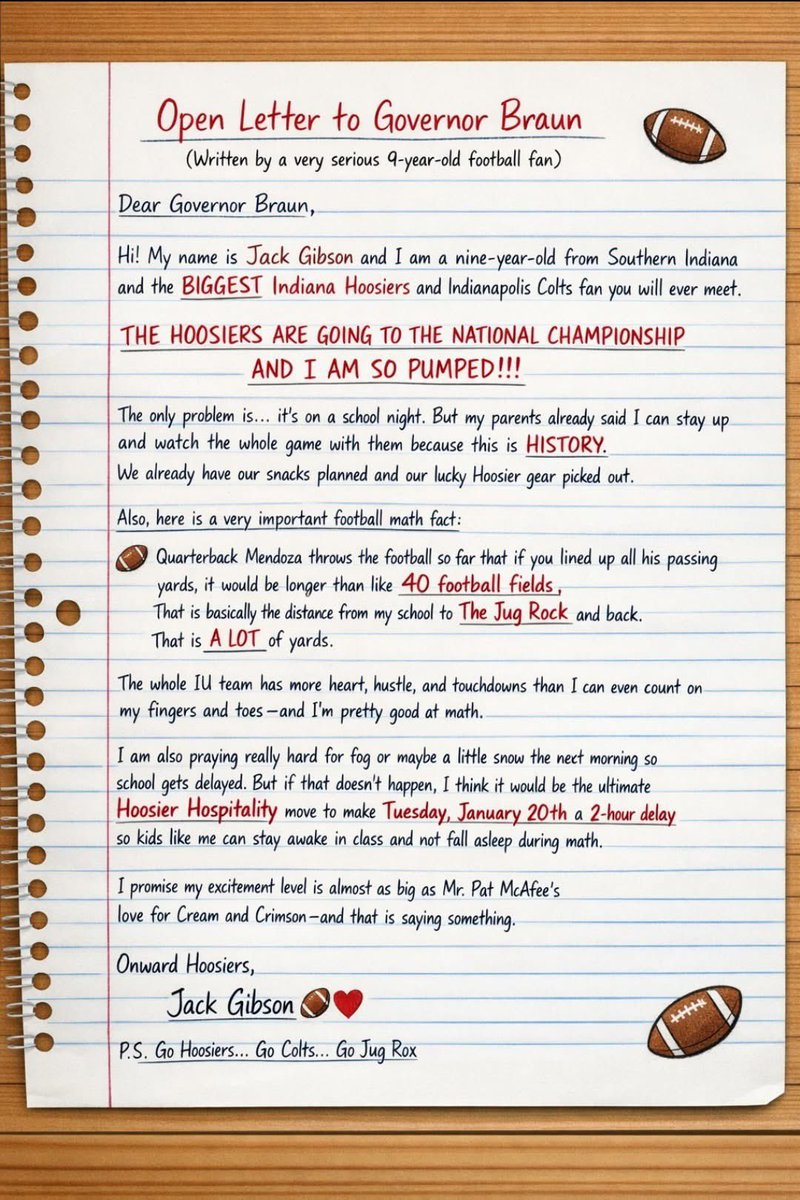 Open Letter to Governor Braun
(Written by a very serious 9-year-old football fan)
Dear Governor Braun,
Hi! My name is Jack Gibson and I am a nine-year-old from Southern Indiana
and the BIGGEST Indiana Hoosiers and Indianapolis Colts fan you will ever meet.
THE HOOSIERS ARE GOING TO THE NATIONAL CHAMPIONSHIP
AND I AM SO PUMPED!!!
The only problem is... it's on a school night. But my parents already said I can stay up
and watch the whole game with them because this is HISTORY.
We already have our snacks planned and our lucky Hoosier gear picked out.
Also, here is a very important football math fact:
Quarterback Mendoza throws the football so far that if you lined up all his passing
yards, it would be longer than like 40 football fields,
That is basically the distance from my school to The Jug Rock and back.
That is A LOT of yards.
The whole IU team has more heart, hustle, and touchdowns than I can even count on
my fingers and toes—and I'm pretty good at math.
I am also praying really hard for fog or maybe a little snow the next morning so
school gets delayed. But if that doesn't happen, I think it would be the ultimate
Hoosier Hospitality move to make Tuesday, January 20th a 2-hour delay
so kids like me can stay awake in class and not fall asleep during math.
I promise my excitement level is almost as big as Mr. Pat McAfee's
love for Cream and Crimson—and that is saying something.
Onward Hoosiers,
Jack Gibson
P.S. Go Hoosiers... Go Colts... Go Jug Rox